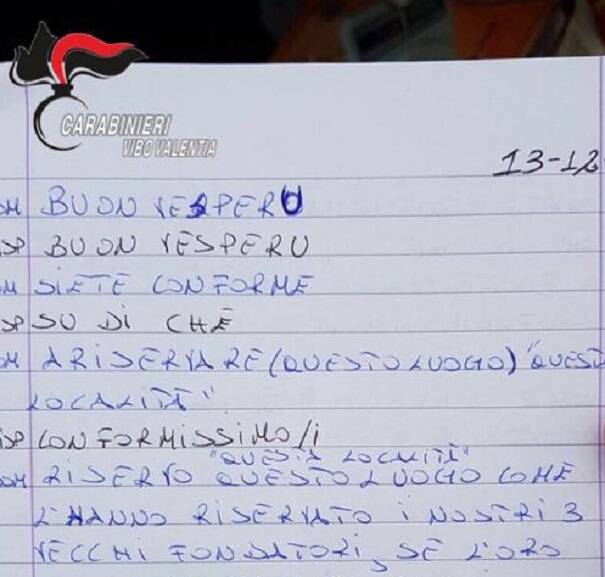 CARABINIERI
VIBO VALENTIA
13-12
DM BUON VESPERU
SP BUON VESPERU
M SIETE CONFORME
SP SU DI CHE
OM A RISERVARE (QUESTO LUOGO) "QUESTA
LOCALITÀ"
ISP CONFORMISSIMO/i
"QUESTA LOCALITÀ"
OM RISERVO QUESTO LUOGO COME
L'HANNO RISERVATO i NOSTRI 3
VECCHI FONDATORI, SE LORO